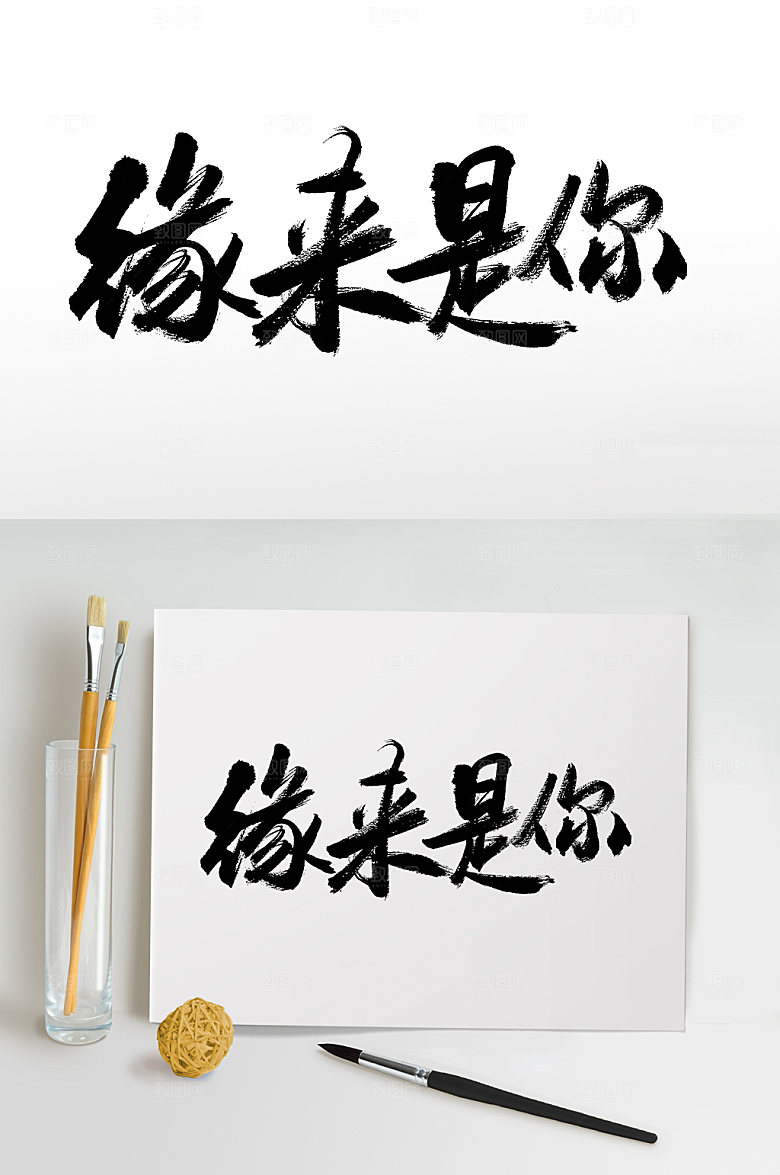 缘来是你
缘来是你